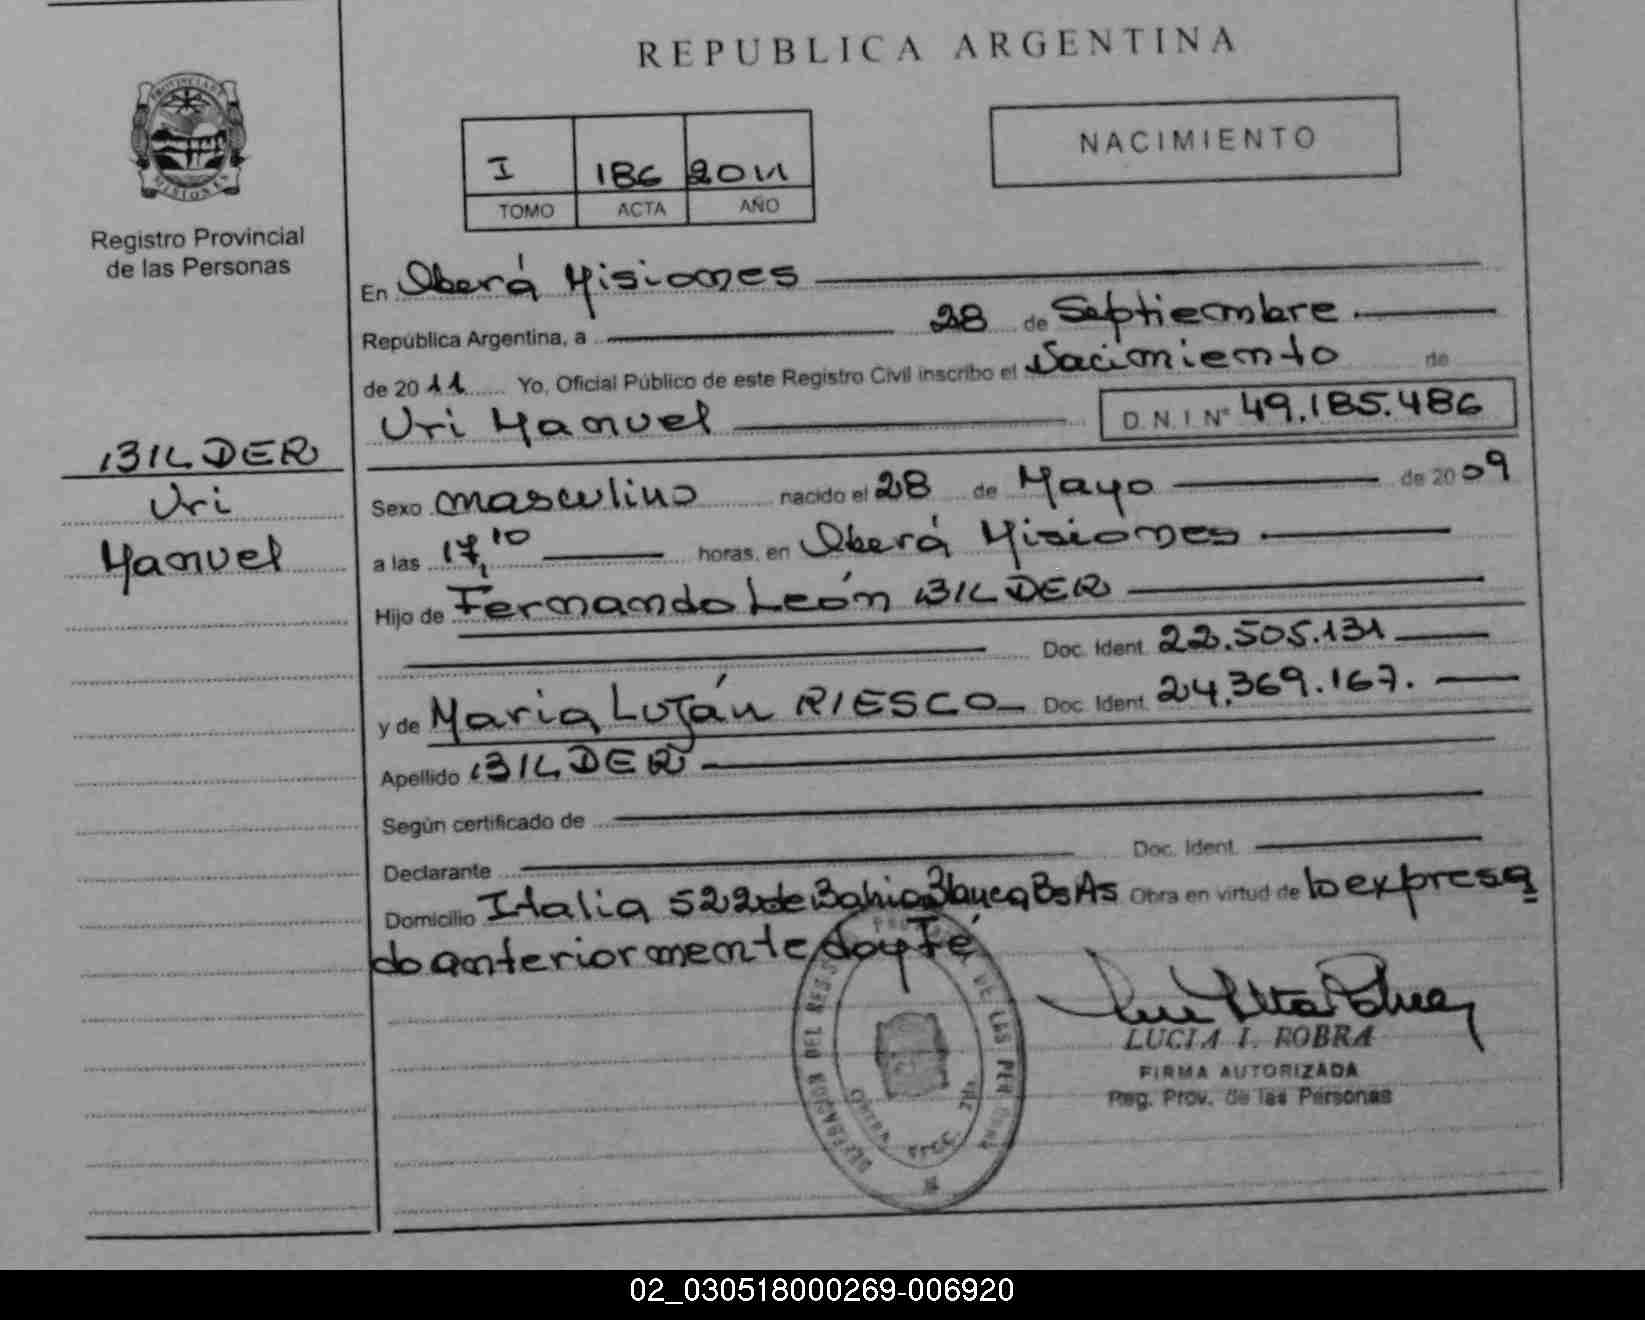 REPUBLICA ARGENTINA
PROVINCIA DE
MISIONES
Registro Provincial
de las Personas
I 186 2011
TOMO ACTA AÑO
NACIMIENTO
En Oberá Misiones
República Argentina, a 28 de Septiembre
de 2011 Yo, Oficial Público de este Registro Civil inscribo el Nacimiento de
Uri Manuel D.N.I Nº 49.185.486
BILDER
Uri
Manuel
Sexo masculino nacido el 28 de Mayo de 2009
a las 17,10 horas, en Oberá Misiones
Hijo de Fernando León BILDER
Doc. Ident. 22.505.131
y de Maria Luján RIESCO Doc. Ident. 24.369.167.
Apellido BILDER
Según certificado de
Declarante Doc. Ident.
Domicilio Italia 522 de Bahia Blanca Bs As Obra en virtud de lo expresa
do anteriormente doy Fé
DEL DE LAS
LUCIA I. ROBRA
FIRMA AUTORIZADA
Reg. Prov. de las Personas
02_030518000269-006920